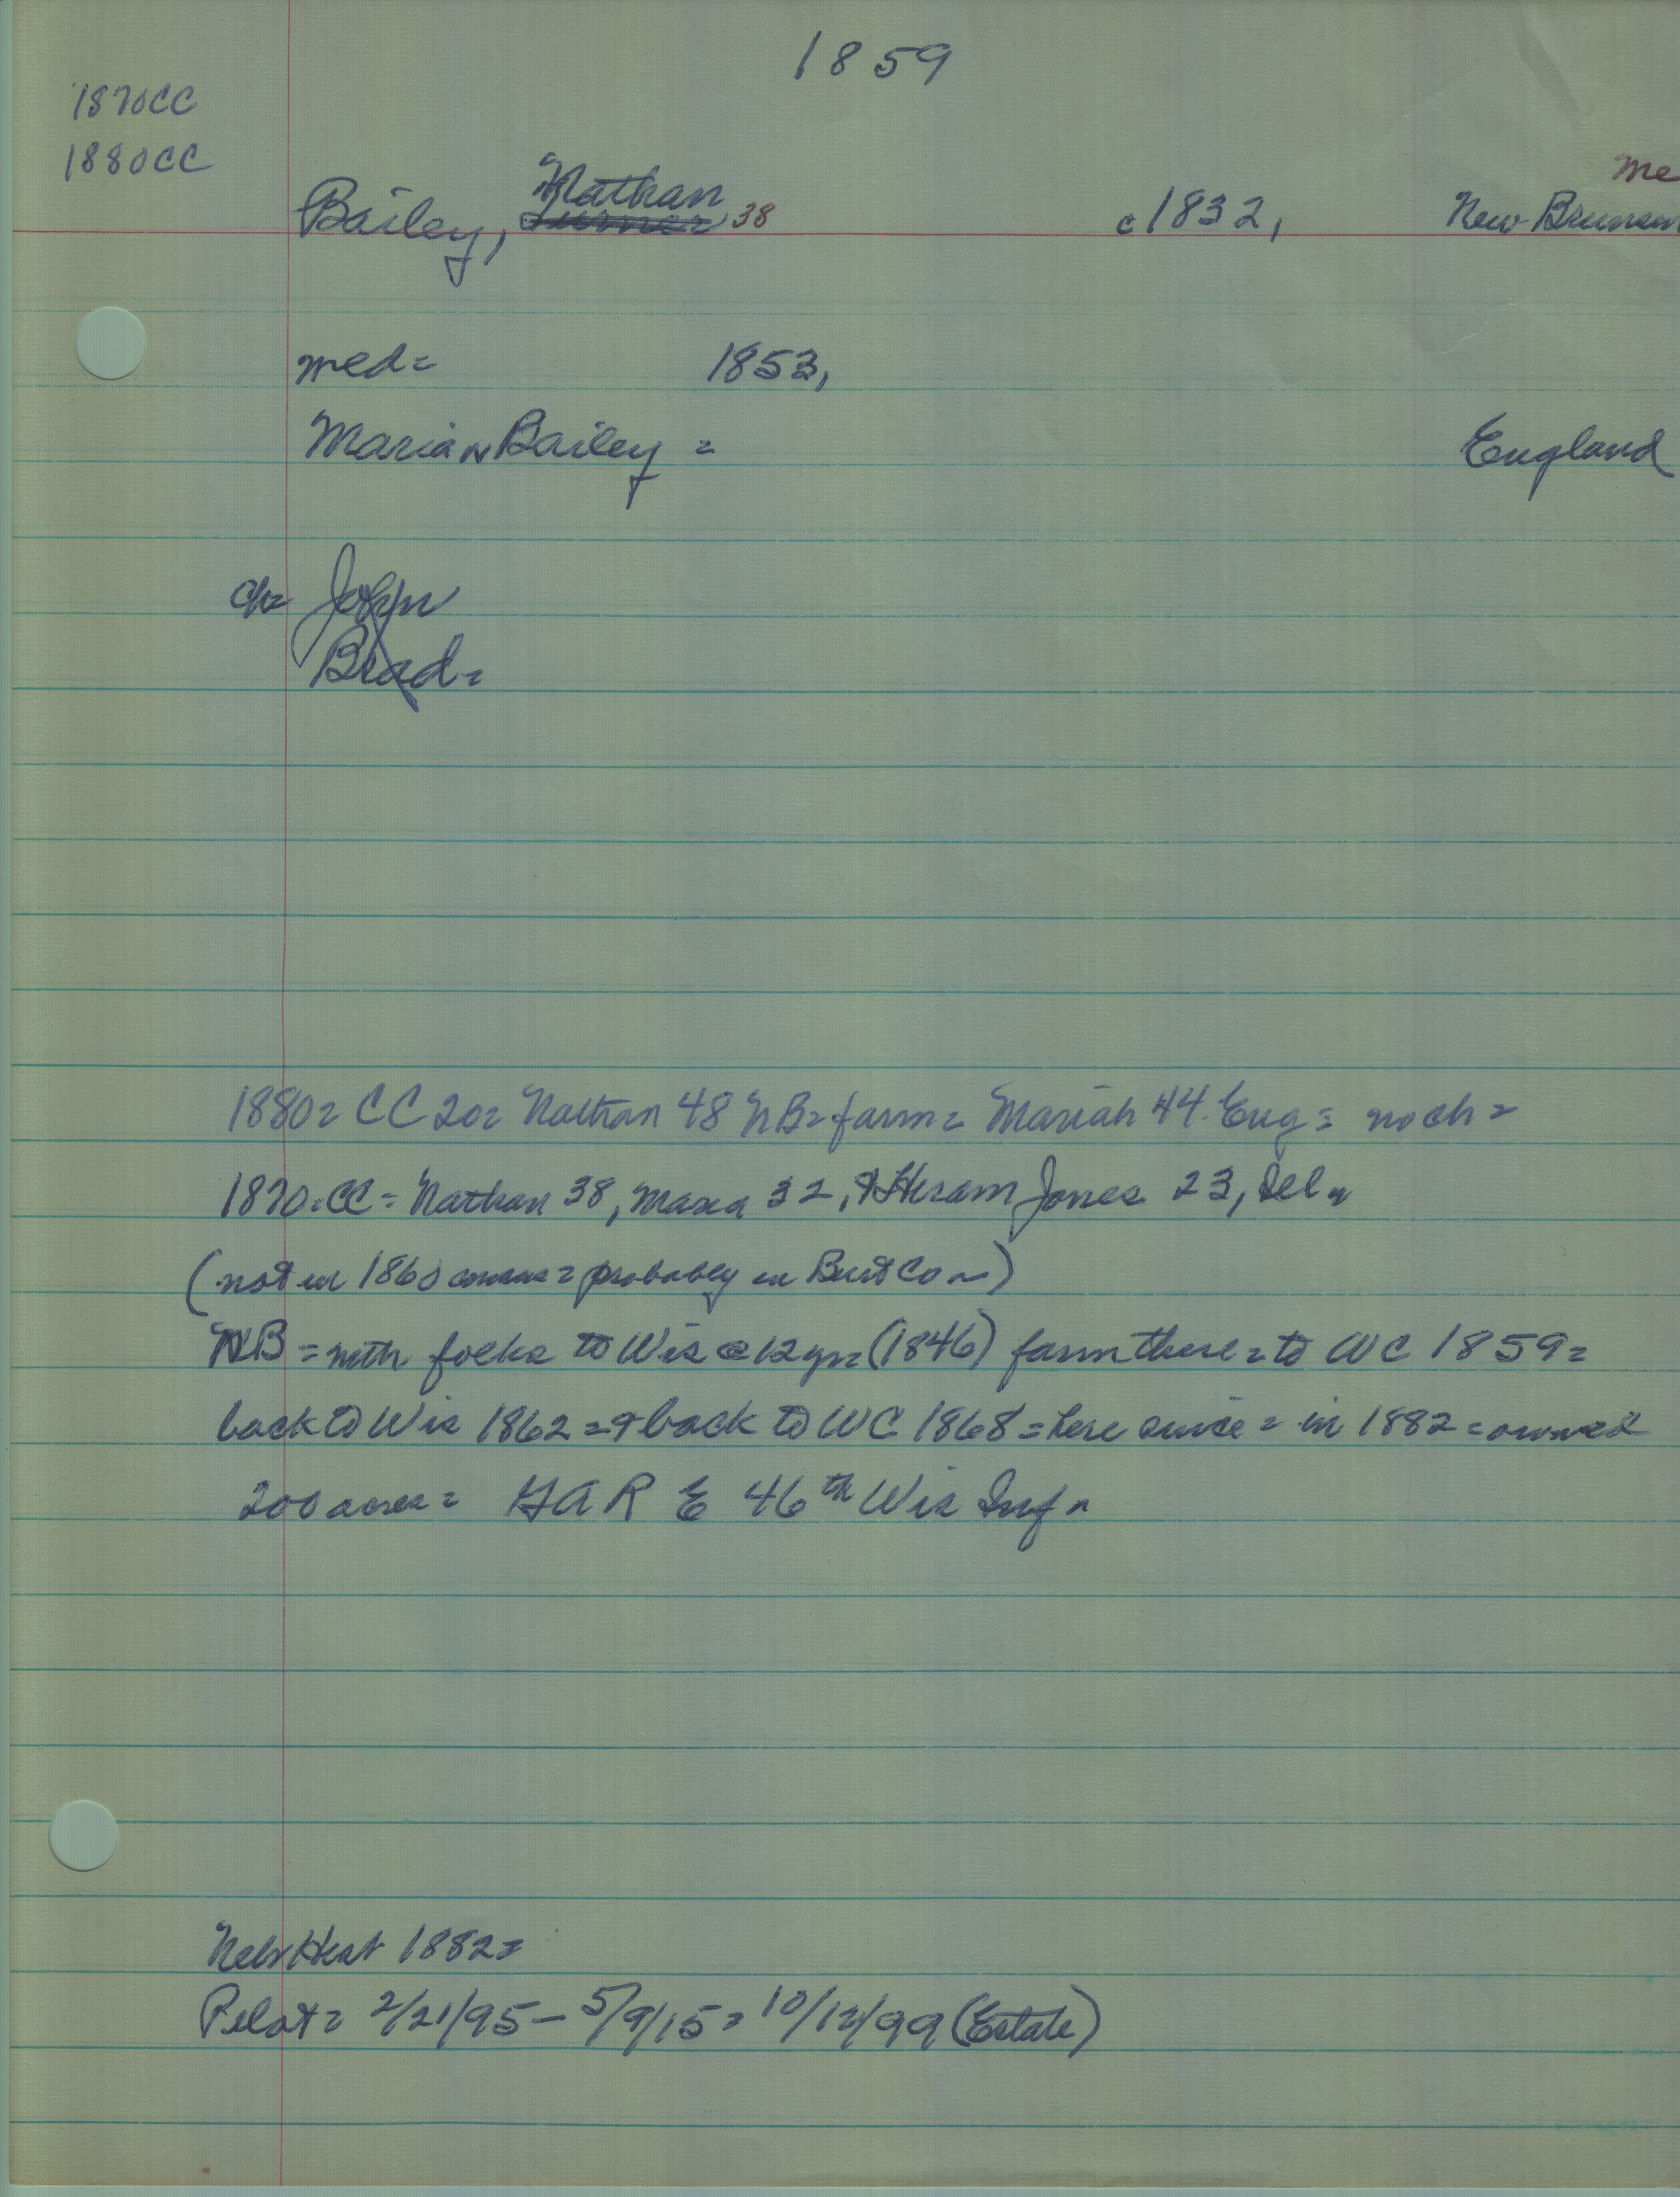 1859
1870CC
1880CC
Me
Nathan
Bailey, 38 c1832, New Brunsw
med= 1853,
Maria Bailey = England
ch= John
Brad=
1880= CC 20= Nathan 48 NB= farm= Mariah 44 Eng= no ch=
1870=CC= Nathan 38, Maria 32, & Hiram Jones 23, Del
(not in 1860 census= probably in Burt Co)
NB= with folks to Wis @ 12 yrs (1846) farm there= to WC 1859=
back to Wis 1862= & back to WC 1868= here since= in 1882= owned
200 acres= GAR E 46th Wis Inf
Nebr Hist 1882=
Pilot= 2/21/95- 5/9/15= 10/12/99 (Estate)